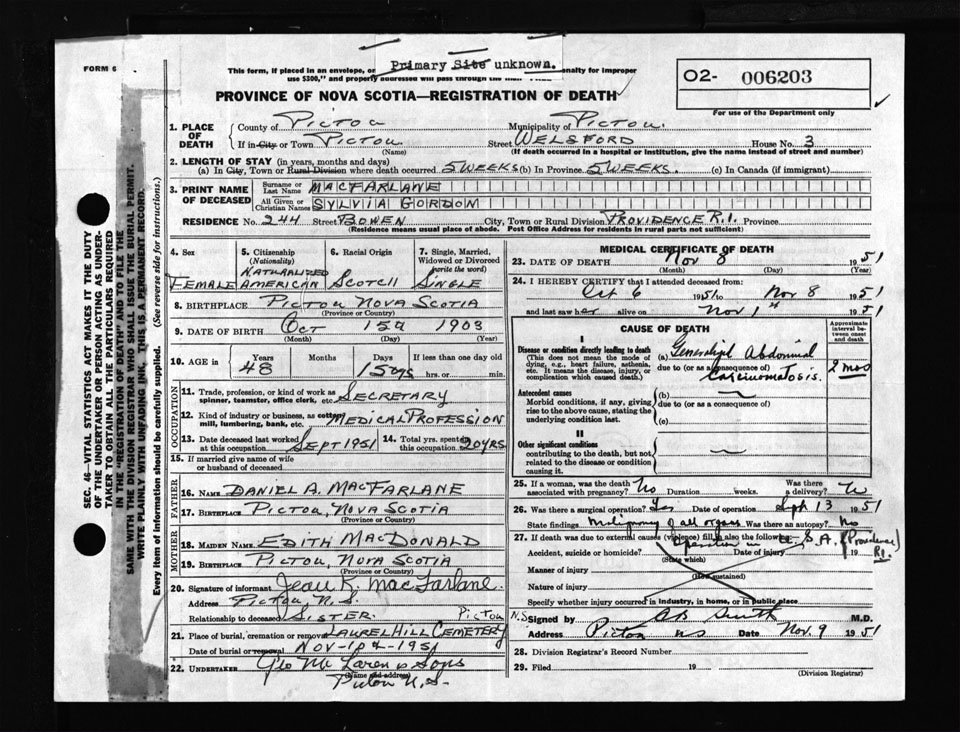 FORM 6
Primary Site unknown.
This form, if placed in an envelope, or
enalty for improper
use $300," and properly addressed will pass through the
02- 006203
PROVINCE OF NOVA SCOTIA—REGISTRATION OF DEATH
For use of the Department only
1. PLACE OF DEATH County of PICTOU Municipality of PICTOU.
If in City or Town PICTOU Street WELSFORD House No. 3
(Name) (If death occurred in a hospital or institution, give the name instead of street and number)
2. LENGTH OF STAY (in years, months and days)
(a) In City, Town or Rural Division where death occurred 5 WEEKS (b) In Province 5 WEEKS. (c) In Canada (if immigrant)
3. PRINT NAME OF DECEASED Surname or Last Name MACFARLANE
All Given or Christian Names SYLVIA GORDON
RESIDENCE No. 244 Street BOWEN City, Town or Rural Division PROVIDENCE R.I. Province
(Residence means usual place of abode. Post Office Address for residents in rural parts not sufficient)
4. Sex FEMALE
5. Citizenship (Nationality) NATURALIZED AMERICAN
6. Racial Origin SCOTCH
7. Single, Married, Widowed or Divorced (write the word) SINGLE
8. BIRTHPLACE PICTOU NOVA SCOTIA
(Province or Country)
9. DATE OF BIRTH OCT 15th 1903
(Month) (Day) (Year)
10. AGE in Years 48 Months Days 15 dys If less than one day old hrs. or min.
OCCUPATION
11. Trade, profession, or kind of work as spinner, teamster, office clerk, etc. SECRETARY
12. Kind of industry or business, as cotton mill, lumbering, bank, etc. MEDICAL PROFESSION
13. Date deceased last worked at this occupation SEPT 1951 14. Total yrs. spent in this occupation 20 YRS
15. If married give name of wife or husband of deceased
FATHER
16. NAME DANIEL A. MACFARLANE
17. BIRTHPLACE PICTOU, NOVA SCOTIA
(Province or Country)
MOTHER
18. MAIDEN NAME EDITH MACDONALD
19. BIRTHPLACE PICTOU, NOVA SCOTIA
(Province or Country)
20. Signature of informant Jean K. MacFarlane.
Address PICTOU N.S.
Relationship to deceased SISTER. PICTOU
21. Place of burial, cremation or removal LAUREL HILL CEMETERY N.S
Date of burial or removal NOV-10th-1951
22. UNDERTAKER Geo McLaren & Sons
(Name and address)
Pictou N.S.
MEDICAL CERTIFICATE OF DEATH
23. DATE OF DEATH Nov 8 1951
(Month) (Day) (Year)
24. I HEREBY CERTIFY that I attended deceased from:
Oct 6 1951 to Nov 8 1951
and last saw her alive on Nov 1st 1951
CAUSE OF DEATH
Approximate interval between onset and death
I
Disease or condition directly leading to death (a) Generalized Abdominal
(This does not mean the mode of dying, e.g., heart failure, asthenia, etc. It means the disease, injury, or complication which caused death.)
due to (or as a consequence of) Carcinomatosis. 2 mos
Antecedent causes (b)
Morbid conditions, if any, giving rise to the above cause, stating the underlying condition last.
due to (or as a consequence of)
(c)
II
Other significant conditions
contributing to the death, but not related to the disease or condition causing it.
25. If a woman, was the death associated with pregnancy? No Duration weeks. Was there a delivery? No
26. Was there a surgical operation? Yes Date of operation Sept 13 1951
State findings malignancy of all organs Was there an autopsy? No
27. If death was due to external causes (violence) fill in also the following:
operation in U.S.A. (Providence) R.I.
Accident, suicide or homicide? Date of injury 19
(State which)
Manner of injury
(How sustained)
Nature of injury
Specify whether injury occurred in industry, in home, or in public place
Signed by AB Smith M.D.
Address Pictou NS Date Nov. 9 1951
28. Division Registrar's Record Number
29. Filed 19
(Division Registrar)
SEC. 46—VITAL STATISTICS ACT MAKES IT THE DUTY
OF THE UNDERTAKER OR PERSON ACTING AS UNDER-
TAKER TO OBTAIN ALL THE PARTICULARS REQUIRED
IN THE "REGISTRATION OF DEATH" AND TO FILE THE
SAME WITH THE DIVISION REGISTRAR WHO SHALL ISSUE THE BURIAL PERMIT.
WRITE PLAINLY WITH UNFADING INK, THIS IS A PERMANENT RECORD.
Every item of information should be carefully supplied. (See reverse side for instructions.)